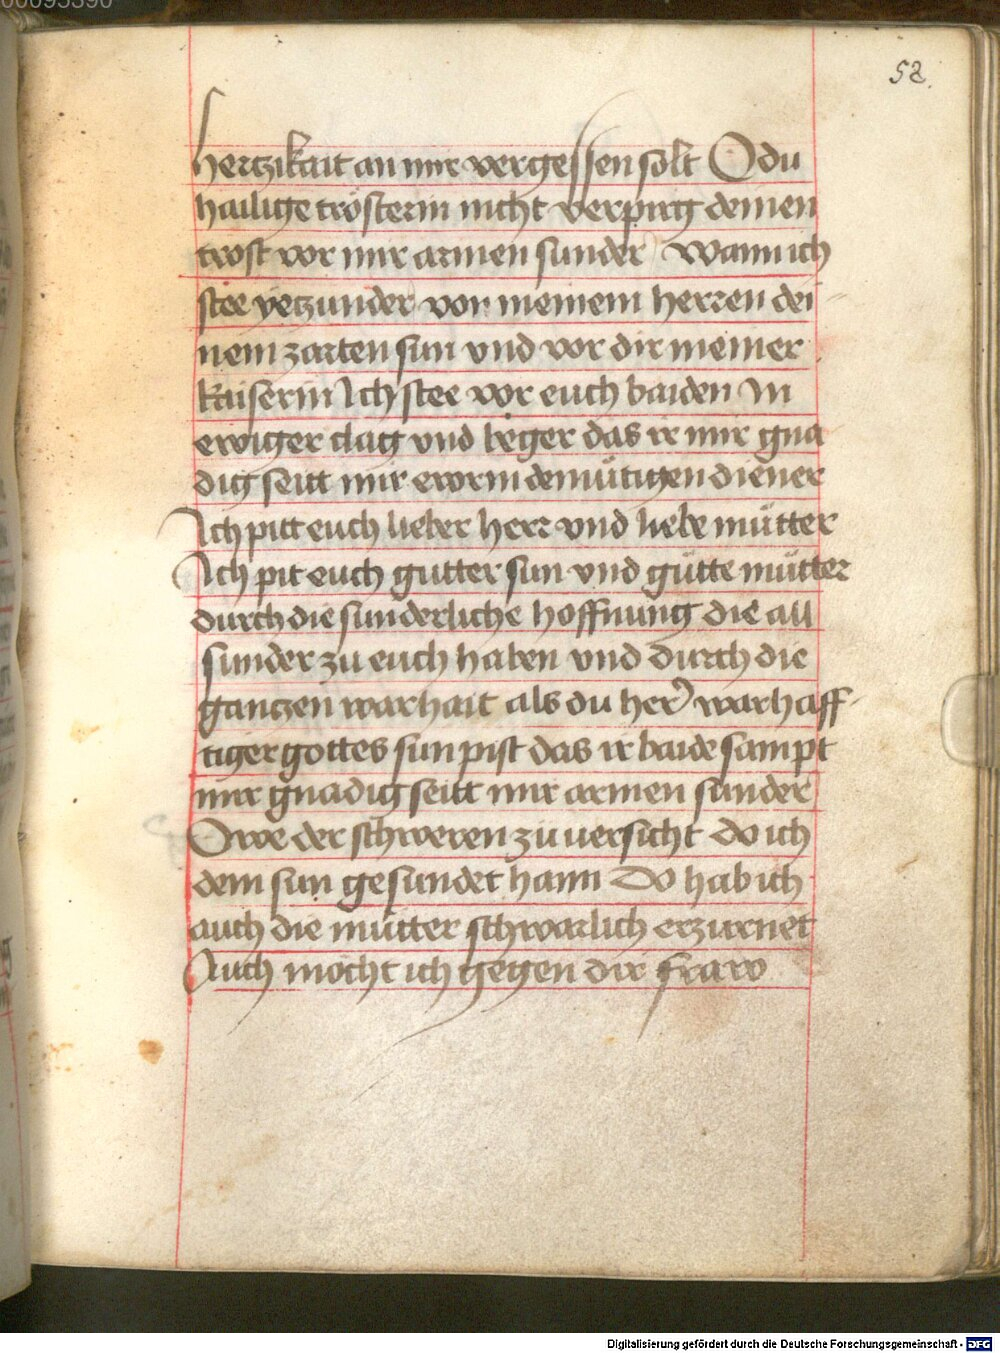 00095390
52.
hertzikait an mir vergessen solt O du
hailige trösterin nicht verpirg deinen
trost vor mir armen sunder Wann ich
stee yetzunder vor meinem herren dei
nem zarten sun vnd vor dir meiner
kaiserin Ich stee vor euch baiden In
ewiger clag vnd beger das ir mir gna
dig seitt mir ewrm demütigen diener
Ich pitt euch lieber herr vnd liebe mütter
Ich pit euch gutter sun vnd gütte mütter
durch die sunderliche hoffnung die all
sunder zu euch haben vnd durch die
gantzen warhait als du her warhaff
tiger gottes sun pist das ir baide sampt
mir gnadig seitt mir armen sunder
Owe der schweren zu uersicht do ich
dem sun gesundet hann Do hab ich
auch die mütter schwarlich erzurnet
Auch mocht ich gegen dir fraw
Digitalisierung gefördert durch die Deutsche Forschungsgemeinschaft - DFG